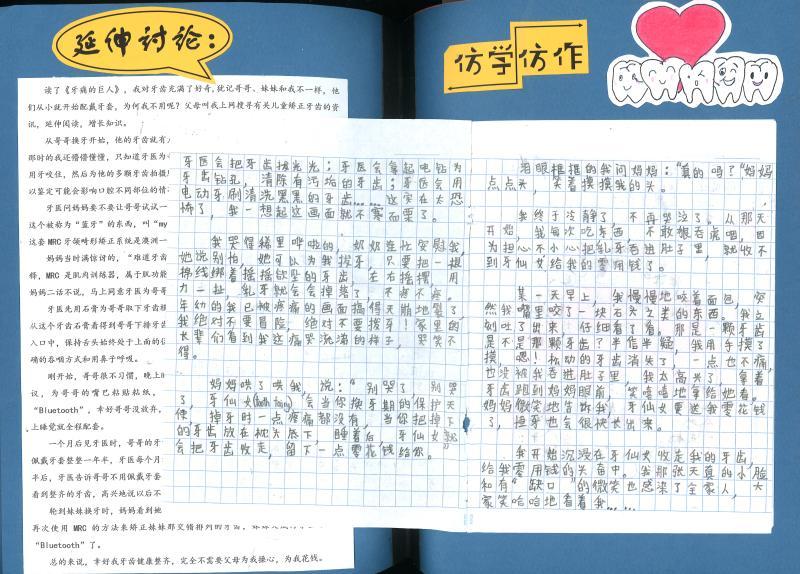 延伸讨论：
读了《牙痛的巨人》，我对牙齿充满了好奇，犹记哥哥、妹妹和我不一样，他
们从小就开始配戴牙套，为何我不用呢？父母叫我上网搜寻有关儿童矫正牙齿的资
讯，延伸阅读，增长知识。
从哥哥换牙开始，他的牙齿就有
那时的我还懵懵懂懂，只知道牙医为
用牙咬住，然后为他的多颗牙齿拍摄
以鉴定可能会影响口腔不同部位的情
牙医问妈妈要不要让哥哥试试一
这个被称为“蓝牙”的东西，叫“my
这套 MRC 牙颌畸形矫正系统是澳洲一
妈妈当时满惊讶的，“难道牙齿
师，MRC 是肌内训练器，属于肌功能
妈妈二话不说，马上同意牙医为哥哥
牙医先用石膏为哥哥取下牙齿模
从这个牙齿石膏看得到哥哥下排牙齿
入口中，保持舌头始终处于上面的位
确的吞咽方式和用鼻子呼吸。
刚开始，哥哥很不习惯，晚上
议，为哥哥的嘴巴粘贴粘纸，
“Bluetooth”，幸好哥哥没放弃，
上睡觉就全程配套。
一个月后见牙医时，哥哥的牙
佩戴牙套整整一年半，牙医每个月
半后，牙医告诉哥哥不用佩戴牙套
看到整齐的牙齿，高兴地说以后不
轮到妹妹换牙时，妈妈看到她
再次使用 MRC 的方法来矫正妹妹那交错排列的牙齿，
“Bluetooth”了。
总的来说，幸好我牙齿健康整齐，完全不需要父母为我操心，为我花钱。
牙医会把牙齿拔光光；牙医会拿起电钻为
牙齿钻孔，清除有污垢的牙齿；牙医会用
电动牙刷清洗黑黑的牙齿……这实在太恐
怖了，我一想起这画面就不寒而栗了。
我哭得稀里哗啦的，奶奶连忙安慰我，
她说别怕，她可以为我拔牙，只要把一根
棉线绑着摇摇欲坠的牙齿，左右摇摆，用
力一扯，乳牙就会会掉落了，不疼不疼。
年幼的我已被疼痛的画面搞得天崩地裂了，
我绝对不要冒险，绝对不要拔牙！家里的
长辈们看到我这痛哭流涕的样子，哭笑不
得。
妈妈哄了哄我，说：“别哭了，别哭
了，牙仙女(tooth fairy)会当你换牙期的保护天
使，掉牙时一点疼痛都没有，当你把掉下
的牙齿放在枕头底下，睡着后，牙仙女就
会把牙齿收走，留下一点零花钱给你。”
仿学仿作
泪眼摇摇的我问妈妈：“真的吗？”妈妈
点点头，笑着摸摸我的头。
我终于冷静了，不再哭泣了。从那天
开始，我每次吃东西，不敢狼吞虎咽，因
为担心不小心把乳牙吞进肚子里，就收不
到牙仙女给我的零用钱了。
某一天早上，我慢慢地咬着面包，突
然我嘴里咬了一块石头之类的东西。我立
刻吐了出来，仔细看了看。那是一颗牙齿，
是不是那颗牙齿？半信半疑，我用手摸了
摸，嗯！松动的牙齿消失了，一点也不痛，
也没被我吞进肚子里，我太高兴了，拿着
牙齿跑到妈妈眼前，笑嘻嘻地拿给她看。
妈妈微笑地告诉我，牙仙女要送我零花钱
了，恒牙也会很快长出来。
我开始沉浸在牙仙女收走我的牙齿，
给我零用钱的头奋中。我那张天真的小脸
和有“缺口”的微笑也感染了全家人，大
家笑哈哈地看着我……